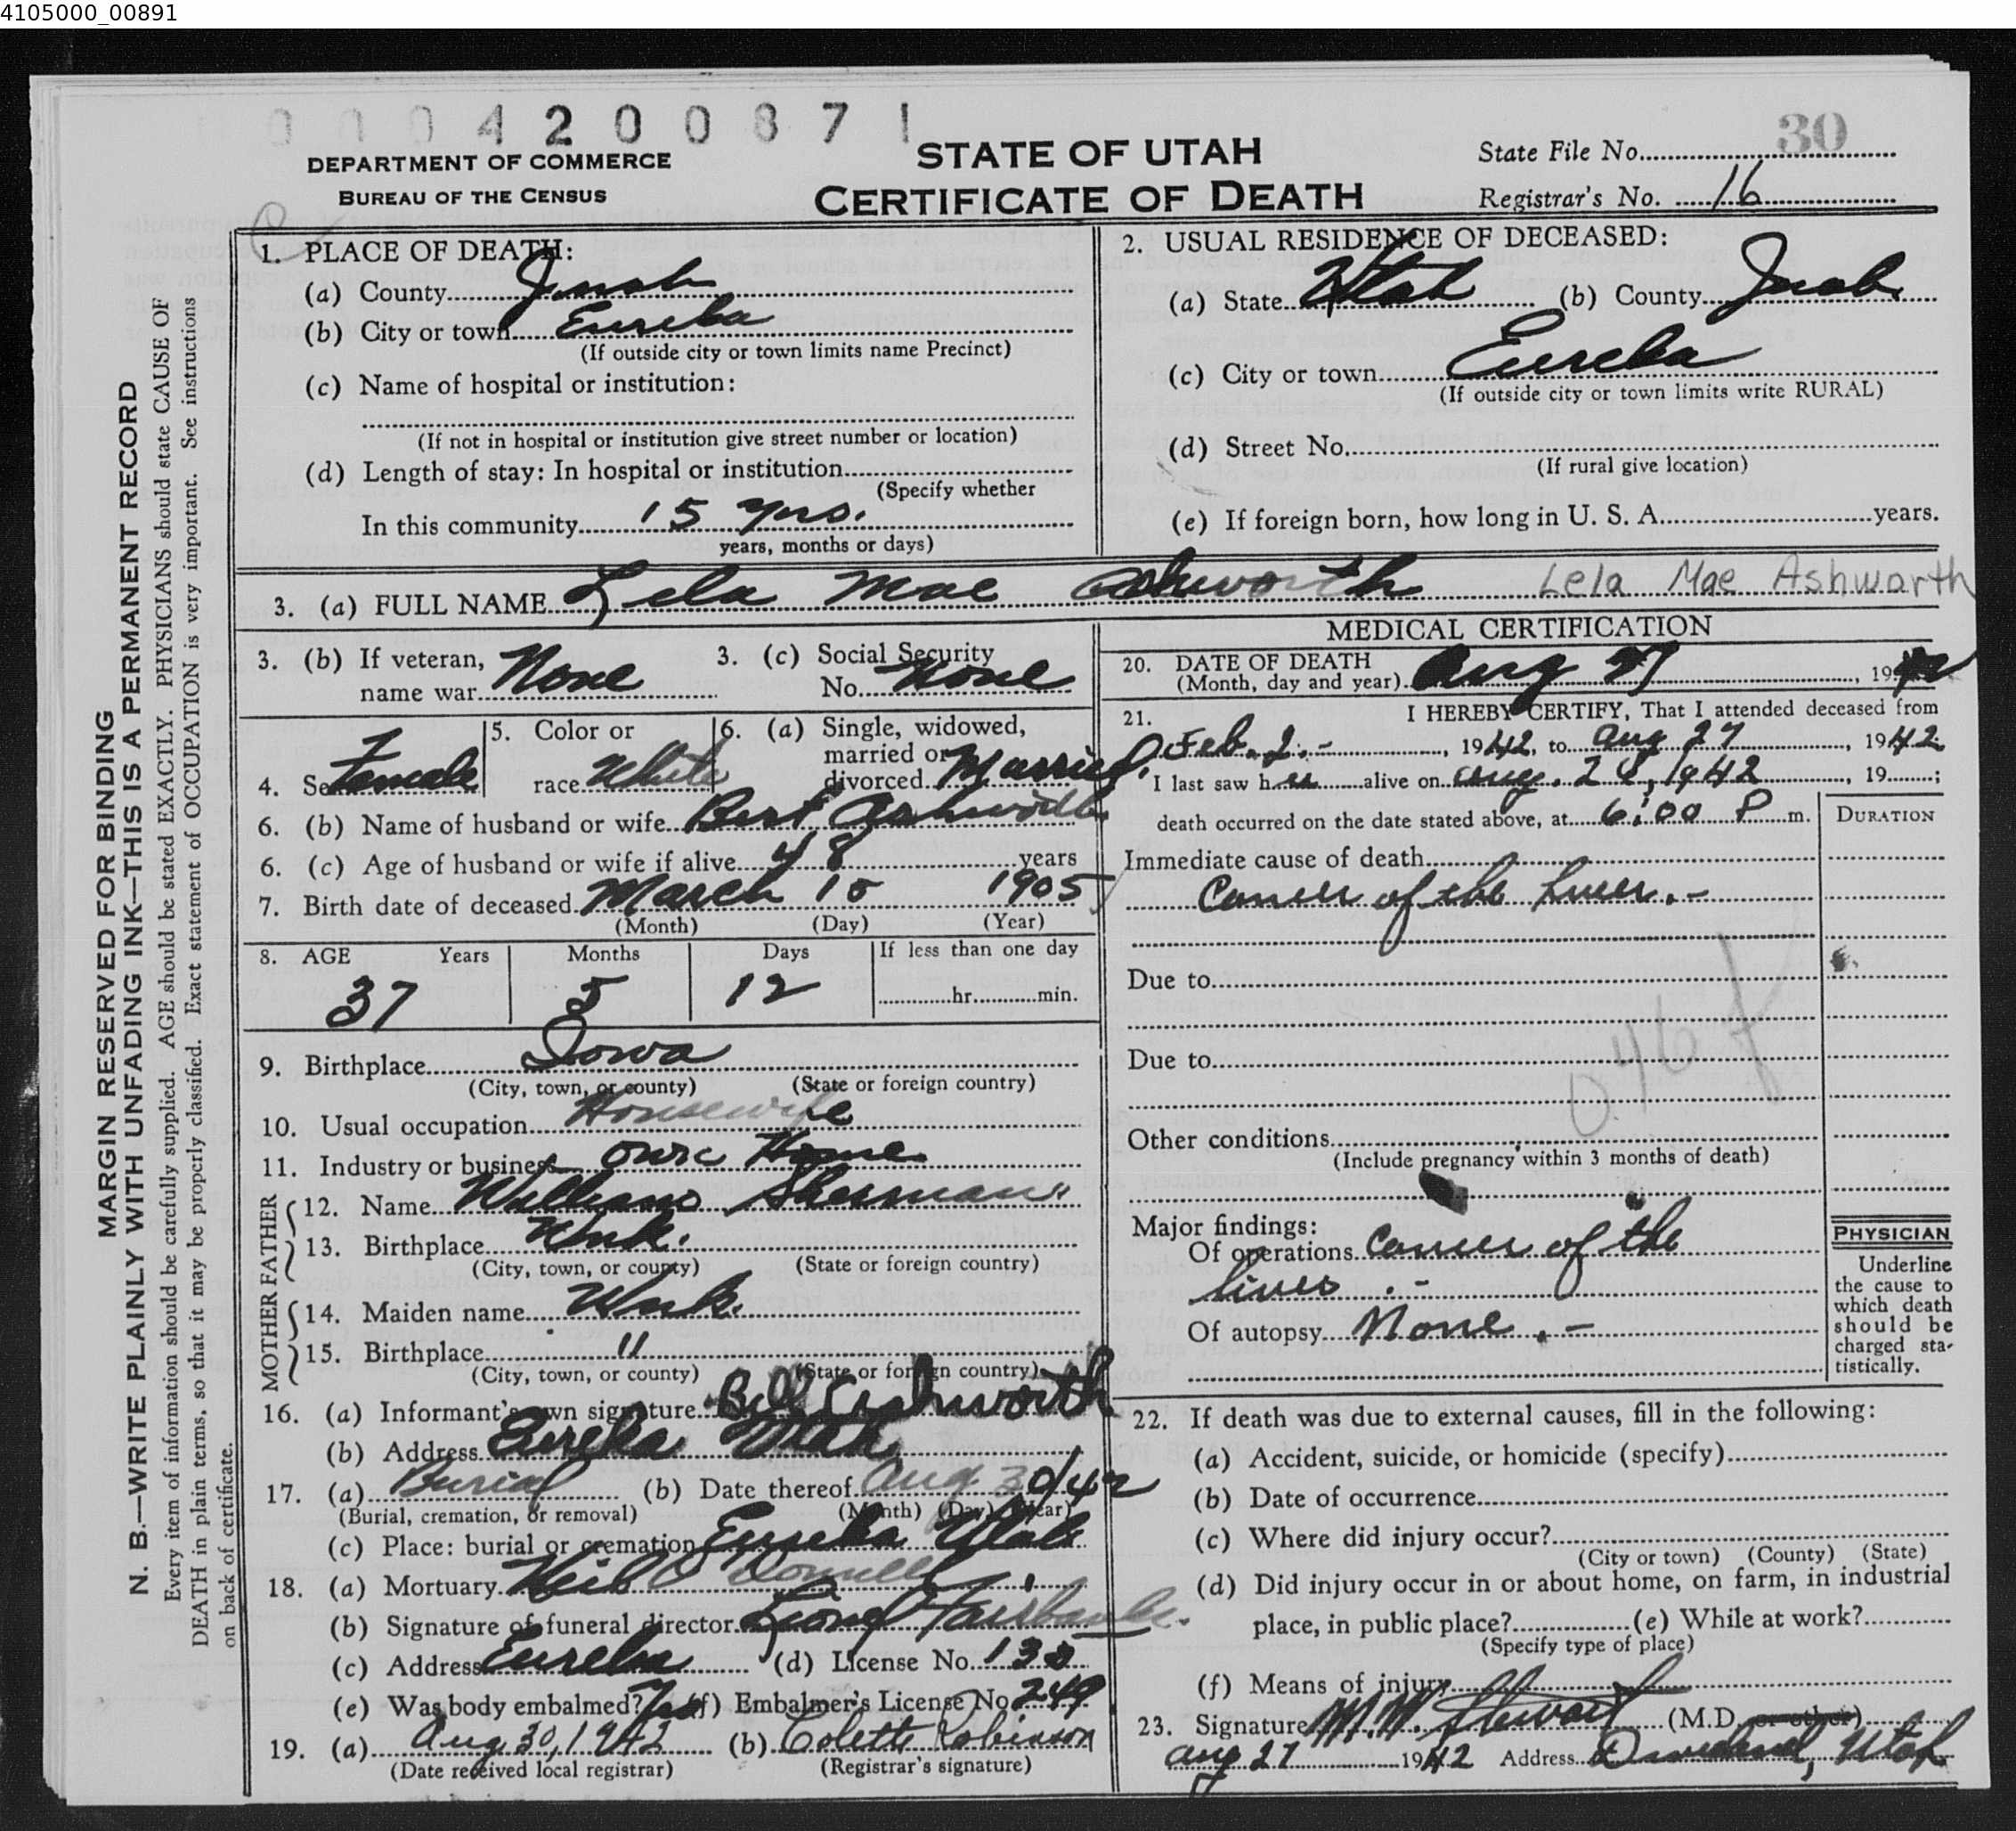 4105000_00891
0004200871
30
DEPARTMENT OF COMMERCE
BUREAU OF THE CENSUS
STATE OF UTAH
CERTIFICATE OF DEATH
State File No.
Registrar's No. 16
MARGIN RESERVED FOR BINDING
N. B.—WRITE PLAINLY WITH UNFADING INK—THIS IS A PERMANENT RECORD
Every item of information should be carefully supplied. AGE should be stated EXACTLY. PHYSICIANS should state CAUSE OF
DEATH in plain terms, so that it may be properly classified. Exact statement of OCCUPATION is very important. See instructions
on back of certificate.
1. PLACE OF DEATH:
(a) County Juab
(b) City or town Eureka
(If outside city or town limits name Precinct)
(c) Name of hospital or institution:
(If not in hospital or institution give street number or location)
(d) Length of stay: In hospital or institution
(Specify whether
In this community 15 yrs.
years, months or days)
2. USUAL RESIDENCE OF DECEASED:
(a) State Utah (b) County Juab
(c) City or town Eureka
(If outside city or town limits write RURAL)
(d) Street No.
(If rural give location)
(e) If foreign born, how long in U. S. A. years.
3. (a) FULL NAME Lela Mae Ashworth Lela Mae Ashworth
3. (b) If veteran, name war None
3. (c) Social Security No. None
4. Sex Female
5. Color or race White
6. (a) Single, widowed, married or divorced Married
6. (b) Name of husband or wife Bert Ashworth
6. (c) Age of husband or wife if alive 48 years
7. Birth date of deceased March 15 1905
(Month) (Day) (Year)
8. AGE Years Months Days If less than one day
37 5 12 hr. min.
9. Birthplace Iowa
(City, town, or county) (State or foreign country)
10. Usual occupation Housewife
11. Industry or business Own Home
FATHER
12. Name William Sherman
13. Birthplace Unk.
(City, town, or county) (State or foreign country)
MOTHER
14. Maiden name Unk.
15. Birthplace "
(City, town, or county) (State or foreign country)
16. (a) Informant's own signature Bill Ashworth
(b) Address Eureka Utah
17. (a) Burial (b) Date thereof Aug 30/42
(Burial, cremation, or removal) (Month) (Day) (Year)
(c) Place: burial or cremation Eureka Utah
18. (a) Mortuary Neil O'Donnell
(b) Signature of funeral director Fairbanks
(c) Address Eureka (d) License No.
(e) Was body embalmed? Yes (f) Embalmer's License No. 249
19. (a) Aug 30, 1942 (b) Colette Robinson
(Date received local registrar) (Registrar's signature)
MEDICAL CERTIFICATION
20. DATE OF DEATH
(Month, day and year) Aug 27, 1942
21. I HEREBY CERTIFY, That I attended deceased from
Feb. 2.-, 1942, to Aug 27, 1942
I last saw her alive on Aug. 1942, 19 ;
death occurred on the date stated above, at 6:00 P m.
DURATION
Immediate cause of death
Cancer of the Liver.-
Due to
046f
Due to
Other conditions
(Include pregnancy within 3 months of death)
Major findings:
Of operations Cancer of the
liver.-
Of autopsy None.-
PHYSICIAN
Underline
the cause to
which death
should be
charged sta-
tistically.
22. If death was due to external causes, fill in the following:
(a) Accident, suicide, or homicide (specify)
(b) Date of occurrence
(c) Where did injury occur?
(City or town) (County) (State)
(d) Did injury occur in or about home, on farm, in industrial
place, in public place? (e) While at work?
(Specify type of place)
(f) Means of injury
23. Signature M. M. Stewart (M.D. or other)
Aug 27 1942 Address Dividend, Utah